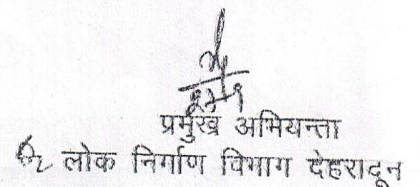 प्रमुख अभियन्ता
लोक निर्माण विभाग देहरादून